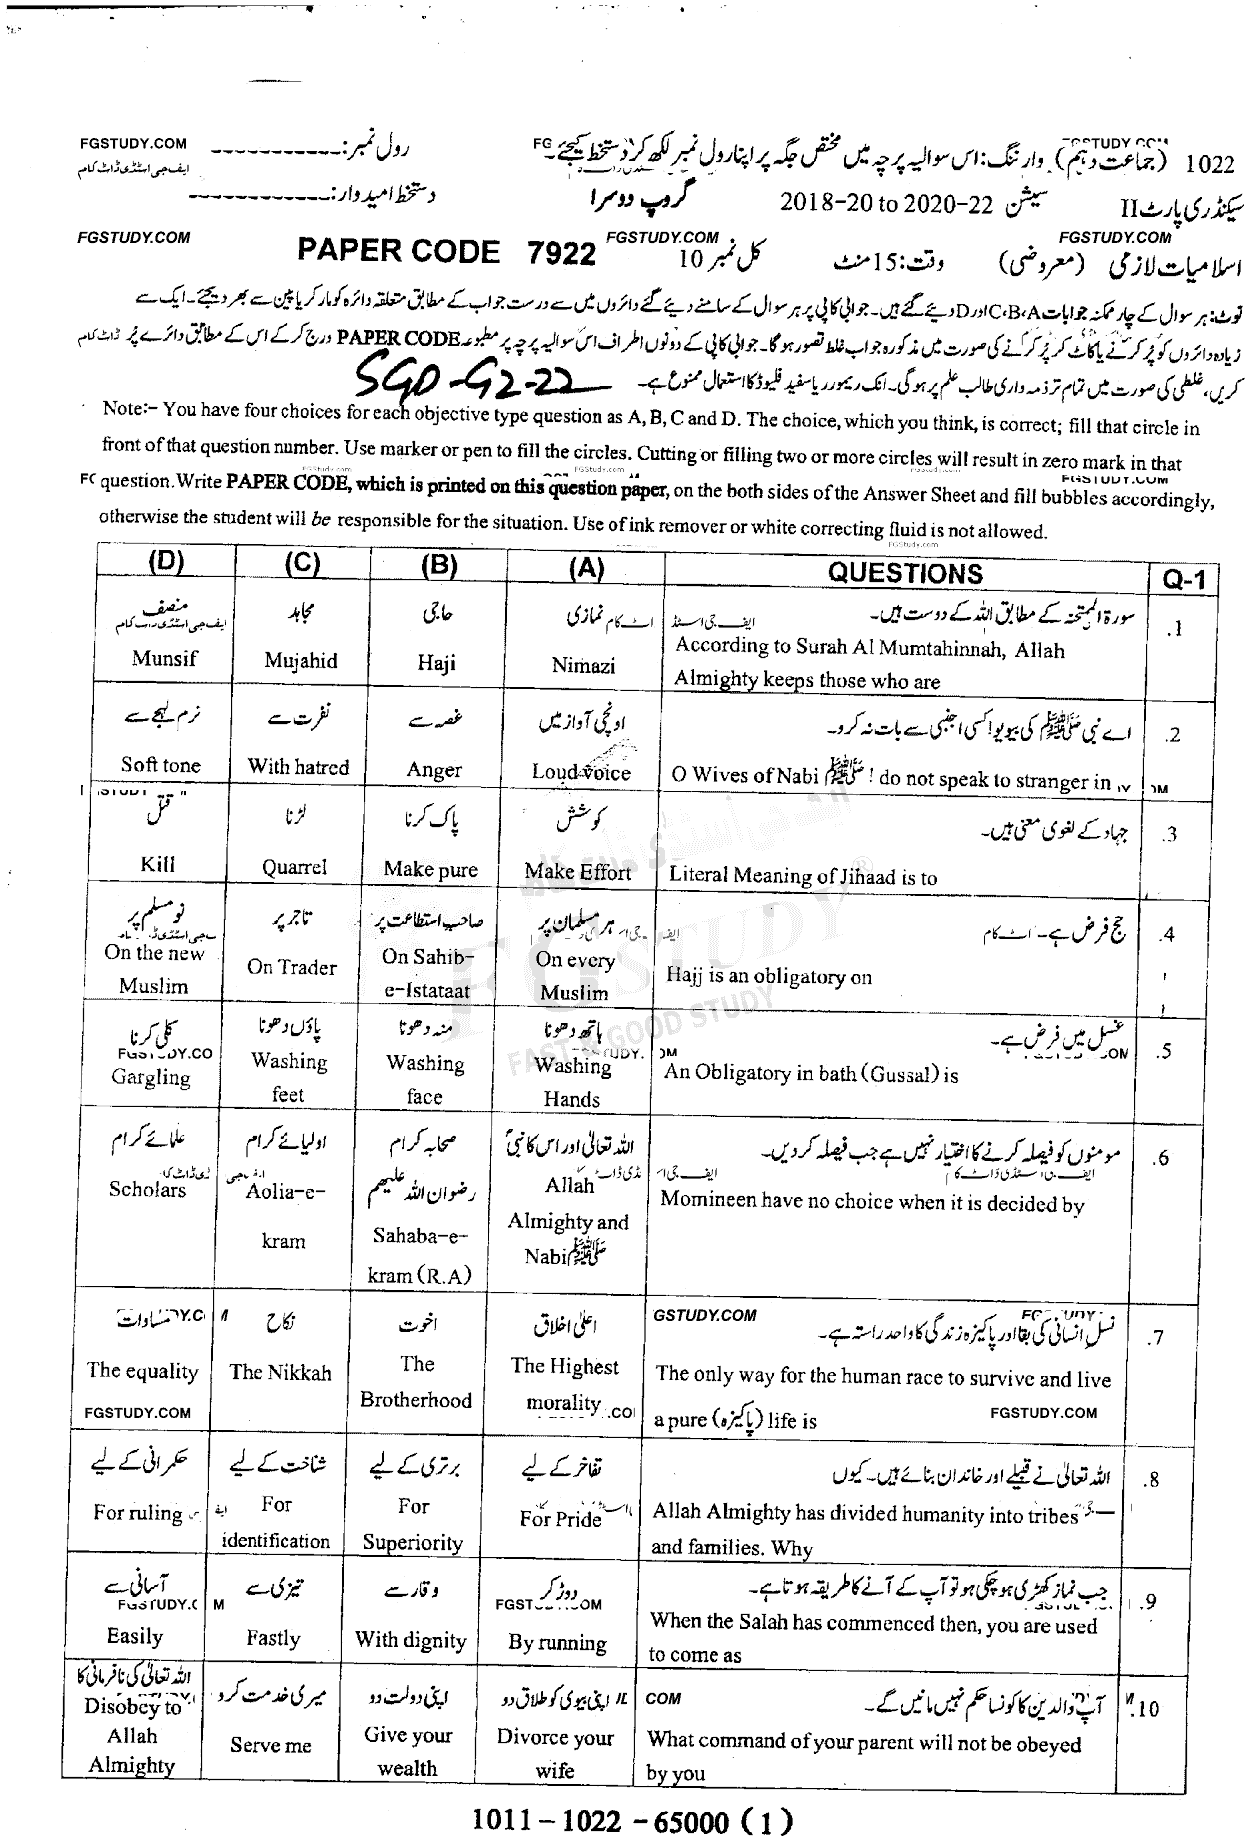 FGSTUDY.COM
رول نمبر: ------------
1022 (جماعت دہم) وارننگ: اس سوالیہ پرچہ میں مختص جگہ پر اپنا رول نمبر لکھ کر دستخط کیجئے۔
ایف جی اسٹڈی ڈاٹ کام
دستخط امیدوار: ------------
سیکنڈری پارٹ II سیشن 2018-20 to 2020-22 گروپ دوسرا
FGSTUDY.COM FGSTUDY.COM FGSTUDY.COM
اسلامیات لازمی (معروضی) وقت: 15 منٹ کل نمبر 10 PAPER CODE 7922
نوٹ: ہر سوال کے چار ممکنہ جوابات C،B،A اور D دیئے گئے ہیں۔ جوابی کاپی پر ہر سوال کے سامنے دیئے گئے دائروں میں سے درست جواب کے مطابق متعلقہ دائرہ کو مارکر یا پین سے بھر دیجئے۔ ایک سے
زیادہ دائروں کو پُر کرنے یا کاٹ کر پُر کرنے کی صورت میں مذکورہ جواب غلط تصور ہوگا۔ جوابی کاپی کے دونوں اطراف اس سوالیہ پرچہ پر مطبوعہ PAPER CODE درج کر کے اس کے مطابق دائرے پُر
کریں، غلطی کی صورت میں تمام تر ذمہ داری طالب علم پر ہوگی۔ انک ریموور یا سفید فلیوڈ کا استعمال ممنوع ہے۔ SGD-G2-22
Note:- You have four choices for each objective type question as A, B, C and D. The choice, which you think, is correct; fill that circle in
front of that question number. Use marker or pen to fill the circles. Cutting or filling two or more circles will result in zero mark in that
question. Write PAPER CODE, which is printed on this question paper, on the both sides of the Answer Sheet and fill bubbles accordingly,
otherwise the student will be responsible for the situation. Use of ink remover or white correcting fluid is not allowed.
(D) (C) (B) (A) QUESTIONS Q-1
منصف مجاہد حاجی نمازی سورۃ الممتحنہ کے مطابق اللہ کے دوست ہیں۔ .1
Munsif Mujahid Haji Nimazi According to Surah Al Mumtahinnah, Allah
Almighty keeps those who are
نرم لہجے سے نفرت سے غصہ سے اونچی آواز میں اے نبی ﷺ کی بیویو! کسی اجنبی سے بات نہ کرو۔ .2
Soft tone With hatred Anger Loud voice O Wives of Nabi ﷺ ! do not speak to stranger in
قتل لڑنا پاک کرنا کوشش جہاد کے لغوی معنی ہیں۔ .3
Kill Quarrel Make pure Make Effort Literal Meaning of Jihaad is to
نو مسلم پر تاجر پر صاحب استطاعت پر ہر مسلمان پر حج فرض ہے۔ .4
On the new On Trader On Sahib- On every Hajj is an obligatory on
Muslim e-Istataat Muslim
کلی کرنا پاؤں دھونا منہ دھونا ہاتھ دھونا غسل میں فرض ہے۔ .5
Gargling Washing Washing Washing An Obligatory in bath (Gussal) is
feet face Hands
علمائے کرام اولیائے کرام صحابہ کرام اللہ تعالیٰ اور اس کا نبیؐ مومنوں کو فیصلہ کرنے کا اختیار نہیں ہے جب فیصلہ کر دیں۔ .6
رضوان اللہ علیہم
Scholars Aolia-e- Sahaba-e- Allah Momineen have no choice when it is decided by
kram kram (R.A) Almighty and
Nabi ﷺ
مساوات نکاح اخوت اعلیٰ اخلاق نسل انسانی کی بقا اور پاکیزہ زندگی کا واحد راستہ ہے۔ .7
The equality The Nikkah The The Highest The only way for the human race to survive and live
Brotherhood morality a pure (پاکیزہ) life is
FGSTUDY.COM FGSTUDY.COM
حکمرانی کے لیے شناخت کے لیے برتری کے لیے تفاخر کے لیے اللہ تعالیٰ نے قبیلے اور خاندان بنائے ہیں۔ کیوں .8
For ruling For For For Pride Allah Almighty has divided humanity into tribes
identification Superiority and families. Why
آسانی سے تیزی سے وقار سے دوڑ کر جب نماز کھڑی ہو چکی ہو تو آپ کے آنے کا طریقہ ہوتا ہے۔ .9
Easily Fastly With dignity By running When the Salah has commenced then, you are used
to come as
اللہ تعالیٰ کی نافرمانی کا میری خدمت کرو اپنی دولت دو اپنی بیوی کو طلاق دو آپ والدین کا کونسا حکم نہیں مانیں گے۔ .10
Disobey to Serve me Give your Divorce your What command of your parent will not be obeyed
Allah wealth wife by you
Almighty
1011 - 1022 - 65000 ( 1 )